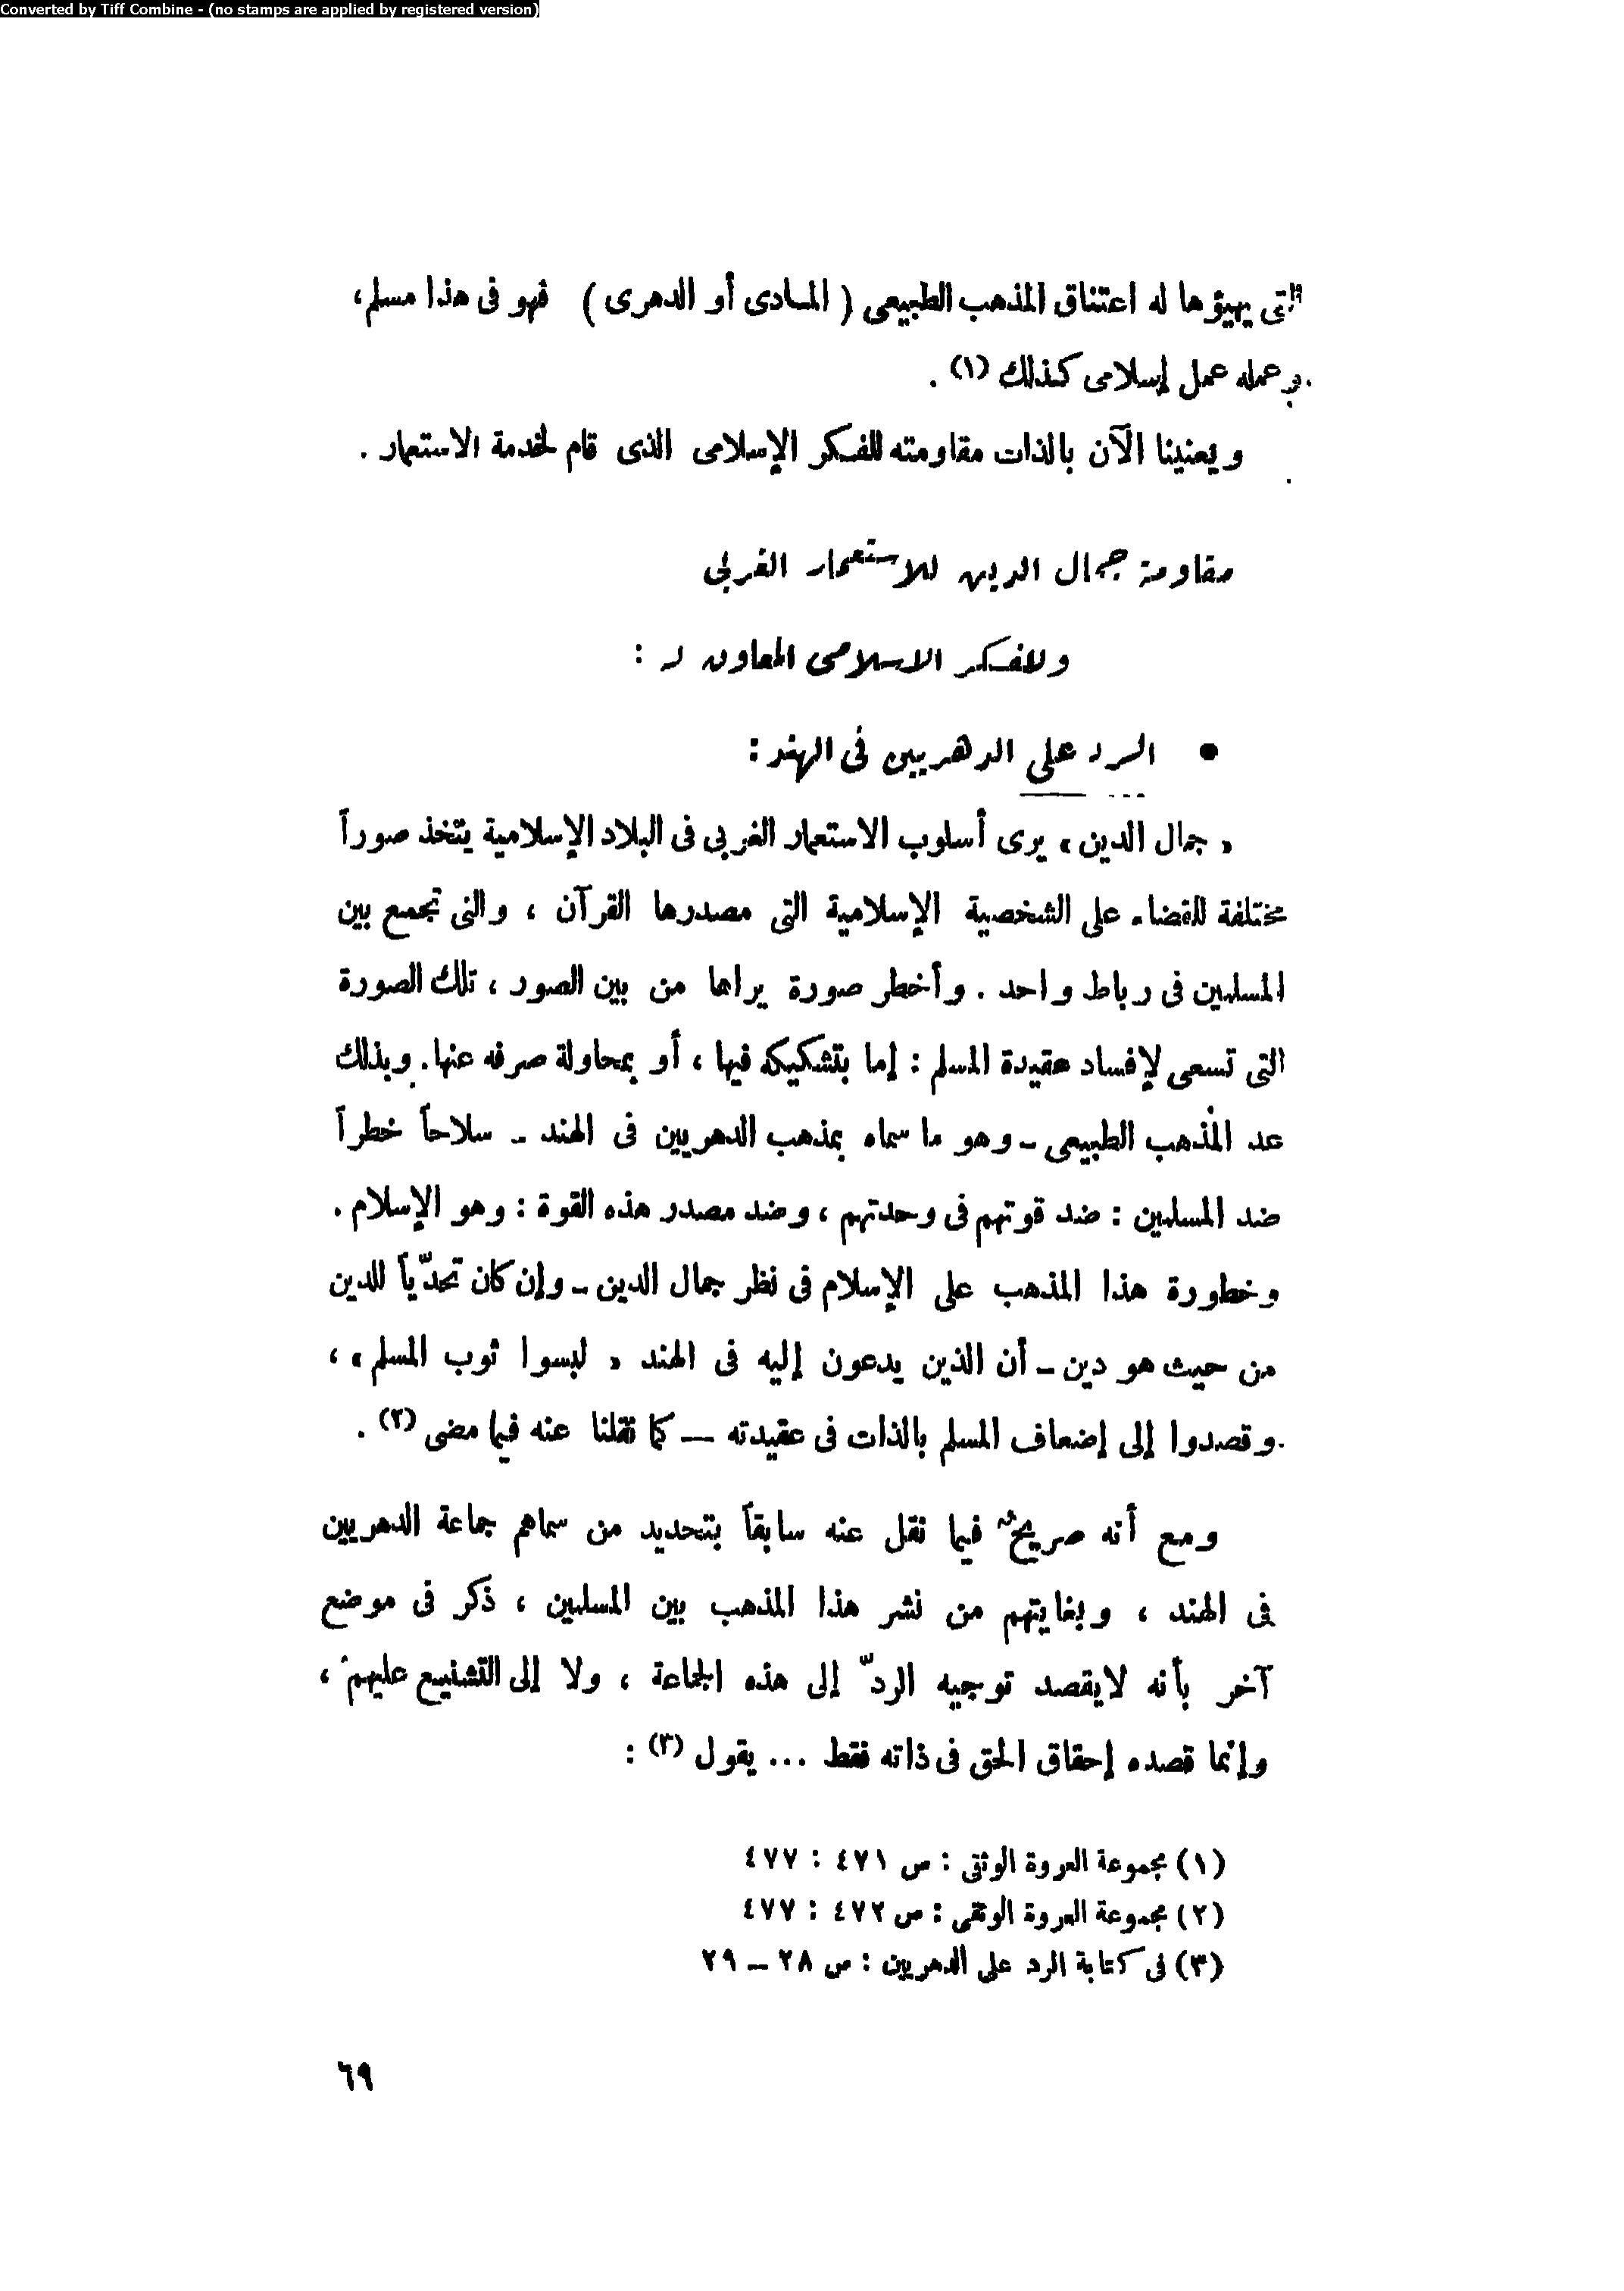 Converted by Tiff Combine - (no stamps are applied by registered version)
التى يهيؤها له اعتناق المذهب الطبيعى ( المادى أو الدهرى ) فهو فى هذا مسلم ،
وعمله عمل إسلامى كذلك (١) .
ويعنينا الآن بالذات مقاومته للفكر الإسلامى الذى قام لخدمة الاستعمار .
مقاومة جمال الدين للاستعمار الغربى
وللفكر الاسلامى المعاون له :
● الرد على الدهريين فى الهند :
« جمال الدين » يرى أسلوب الاستعمار الغربى فى البلاد الإسلامية يتخذ صوراً
مختلفة للقضاء على الشخصية الإسلامية التى مصدرها القرآن ، والتى تجمع بين
المسلمين فى رباط واحد . وأخطر صورة يراها من بين الصور ، تلك الصورة
التى تسعى لإفساد عقيدة المسلم : إما بتشكيكه فيها ، أو بمحاولة صرفه عنها . وبذلك
عد المذهب الطبيعى – وهو ما سماه بمذهب الدهريين فى الهند – سلاحاً خطراً
ضد المسلمين : ضد قوتهم فى وحدتهم ، وضد مصدر هذه القوة : وهو الإسلام .
وخطورة هذا المذهب على الإسلام فى نظر جمال الدين – وإن كان تحدّياً للدين
من حيث هو دين – أن الذين يدعون إليه فى الهند « لبسوا ثوب المسلم » ،
وقصدوا إلى إضعاف المسلم بالذات فى عقيدته – كما نقلنا عنه فيما مضى (٢) .
ومع أنه صريحٌ فيما نقل عنه سابقاً بتحديد من سماهم جماعة الدهريين
فى الهند ، وبغايتهم من نشر هذا المذهب بين المسلمين ، ذكر فى موضع
آخر بأنه لايقصد توجيه الردّ إلى هذه الجماعة ، ولا إلى التشنيع عليهم ،
وإنما قصده إحقاق الحق فى ذاته فقط ... يقول (٣) :
(١) مجموعة العروة الوثقى : ص ٤٧١ : ٤٧٧
(٢) مجموعة العروة الوثقى : ص ٤٧٢ : ٤٧٧
(٣) فى كتابة الرد على الدهريين : ص ٢٨ – ٢٩
٦٩